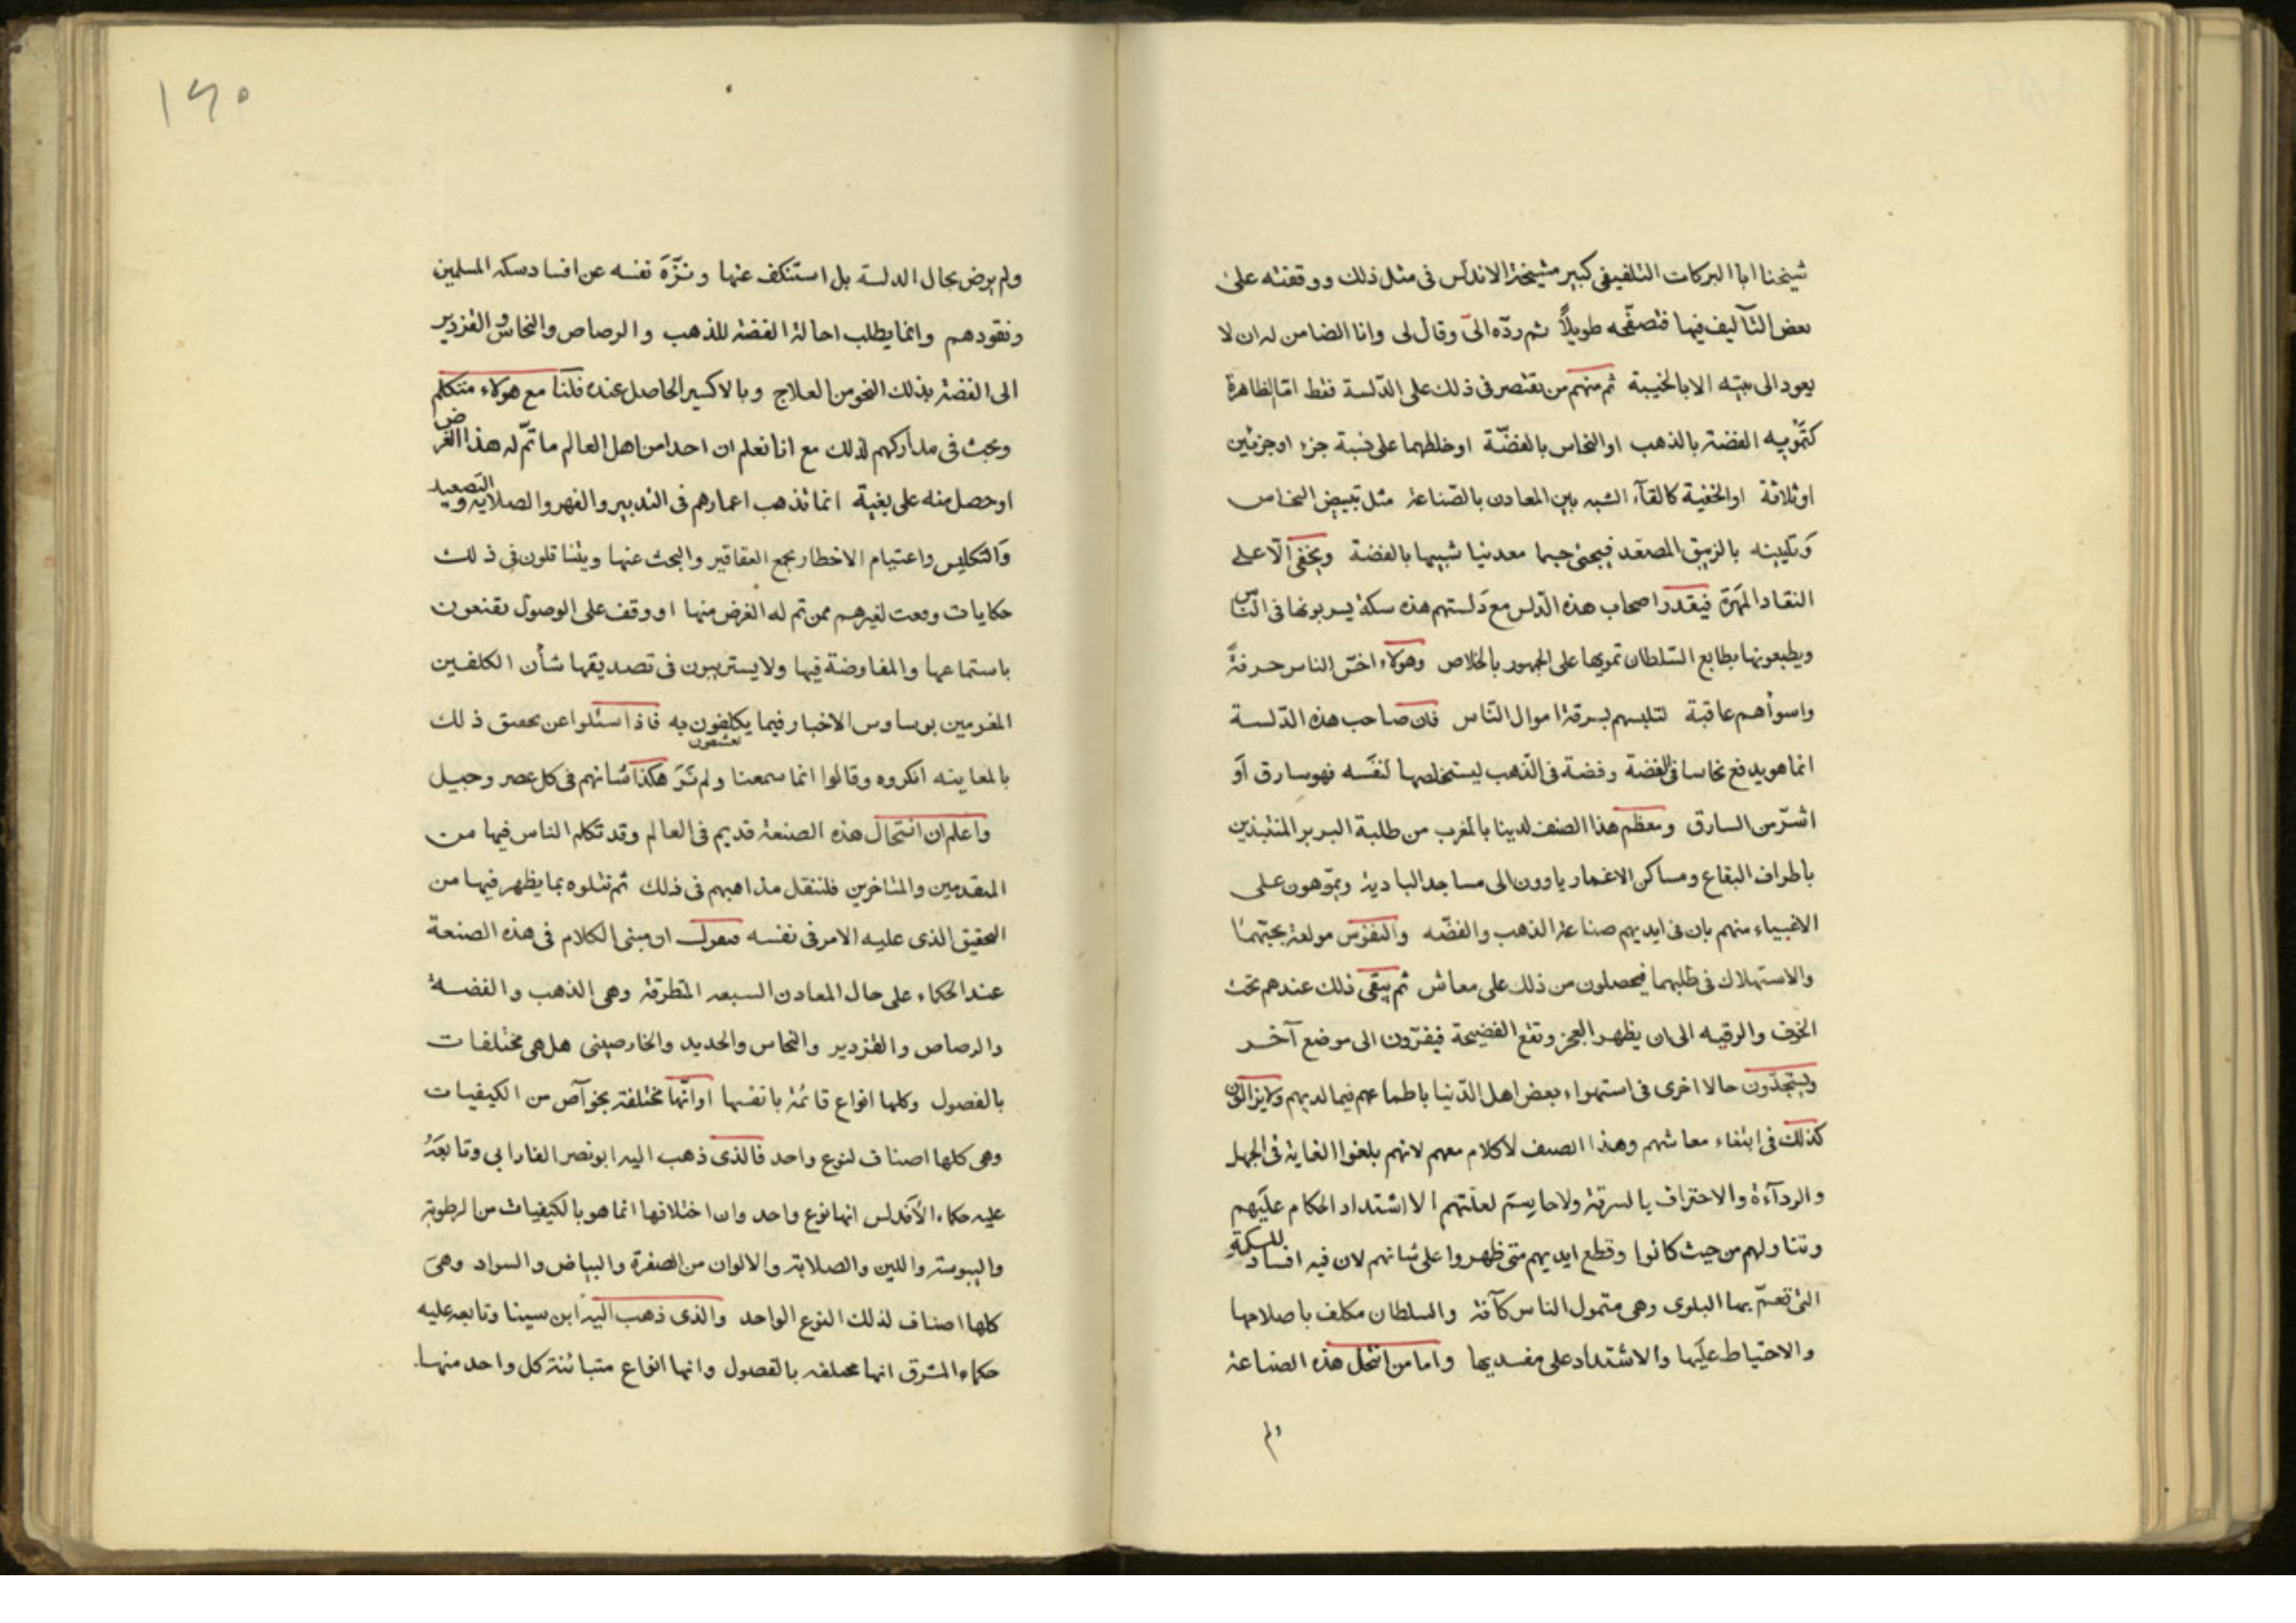 شيخنا ابا البركات التلفيفى كبير مشيخة الاندلس فى مثل ذلك ووقفته على
بعض التآليف فيها فتصفّحه طويلاً ثم ردّه الىّ وقال لى وانا الضامن له ان لا
يعود الى بيته الا بالخيبة ثم منهم من يقتصر فى ذلك على الدّلسة فقط امّا الظاهرة
كتمويه الفضة بالذهب او النحاس بالفضّة او خلطهما على نسبة جزء او جزئين
او ثلاثة او الخفية كالقآء الشبه بين المعادن بالصّناعة مثل تبييض النحاس
وتليينه بالزيبق المصعّد فيجئ جسما معدنيا شبيها بالفضة ويخفى الّا على
النقاد المهَرة فيقدر اصحاب هذه الدّلس مع دَلستهم هذه سكة يسربونها فى النّاس
ويطبعونها بطابع السّلطان تمويها على الجمهور بالخلاص وهولاء اخسّ الناس حرفةً
واسوأهم عاقبة لتلبسهم بسرقة اموال النّاس فان صاحب هذه الدّلسة
انما هو يدفع نحاسا فى الفضة وفضة فى الذّهب ليستخلصها لنفسه فهو سارق أو
اشرّ من السارق ومعظم هذا الصنف لدينا بالمغرب من طلبة البربر المنتبذين
باطراف البقاع ومساكن الاغمار ياوون الى مساجد البادية ويموّهون على
الاغبياء منهم بان فى ايديهم صناعة الذهب والفضّه والنفوس مولعة بحبّهما
والاستهلاك فى طلبهما فيحصلون من ذلك على معاش ثم يبقى ذلك عندهم تحت
الخوف والرقبه الى ان يظهر العجز وتقع الفضيحة فيفرّون الى موضع آخر
ويستجدّون حالا اخرى فى استهواء بعض اهل الدّنيا باطماعهم فيما لديهم ولا يزالون
كذلك فى ابتغاء معاشهم وهذا الصنف لا كلام معهم لانهم بلغوا الغاية فى الجهل
والردآءة والاحتراف بالسرقة ولا حاسم لعلّتهم الا اشتداد الحكام عليهم
وتناولهم من حيث كانوا وقطع ايديهم متى ظهروا على شانهم لان فيه افسادا للسكة
التى تعمّ بها البلوى وهى متمول الناس كآفة والسلطان مكلف باصلاحها
والاحتياط عليها والاشتداد على مفسديها واما من انتحل هذه الصناعة
ولم
١٤٥
ولم يرض بحال الدلسة بل استنكف عنها ونزّهَ نفسه عن افساد سكة المسلمين
ونقودهم وانما يطلب احالة الفضة للذهب والرصاص والنحاس والقزدير
الى الفضة بذلك النحو من العلاج وبالاكسير الحاصل عنده فلنا مع هولاء متكلم
وبحث فى مداركهم لذلك مع انا نعلم ان احدا من اهل العالم ما تمّ له هذا الغرض
او حصل منه على بغية انما تذهب اعمارهم فى التدبير والفهر والصلاية والتصعيد
والتكليس واعتيام الاخطار بجمع العقاقير والبحث عنها ويتناقلون فى ذلك
حكايات وقعت لغيرهم ممن تم له الغرض منها او وقف على الوصول يقنعون
باستماعها والمفاوضة فيها ولا يستريبون فى تصديقها شأن الكلفين
المغرمين بوساوس الاخبار فيما يكلفون به فاذا سئلوا عن تحقيق ذلك
بالمعاينه انكروه وقالوا انما سمعنا ولم نَرَ هكذا شانهم فى كل عصر وجيل
واعلم ان انتحال هذه الصنعة قديم فى العالم وقد تكلم الناس فيها من
المتقدمين والمتاخرين فلننقل مذاهبهم فى ذلك ثم نتلوه بما يظهر فيها من
التحقيق الذى عليه الامر فى نفسه فنقول ان مبنى الكلام فى هذه الصنعة
عند الحكماء على حال المعادن السبعه المتطرقة وهى الذهب والفضة
والرصاص والقزدير والنحاس والحديد والخارصينى هل هى مختلفات
بالفصول وكلها انواع قائمة بانفسها او انّها مختلفة بخوآص من الكيفيات
وهى كلها اصناف لنوع واحد فالذى ذهب اليه ابو نصر الفارابى وتابعَهُ
عليه حكماء الأندلس انها نوع واحد وان اختلافها انما هو بالكيفيات من الرطوبة
واليبوسة واللين والصلابة والالوان من الصفرة والبياض والسواد وهىَ
كلها اصناف لذلك النوع الواحد والذى ذهب اليه ابن سينا وتابعه عليه
حكماء المشرق انها مختلفه بالفصول وانها انواع متبائنة كل واحد منها